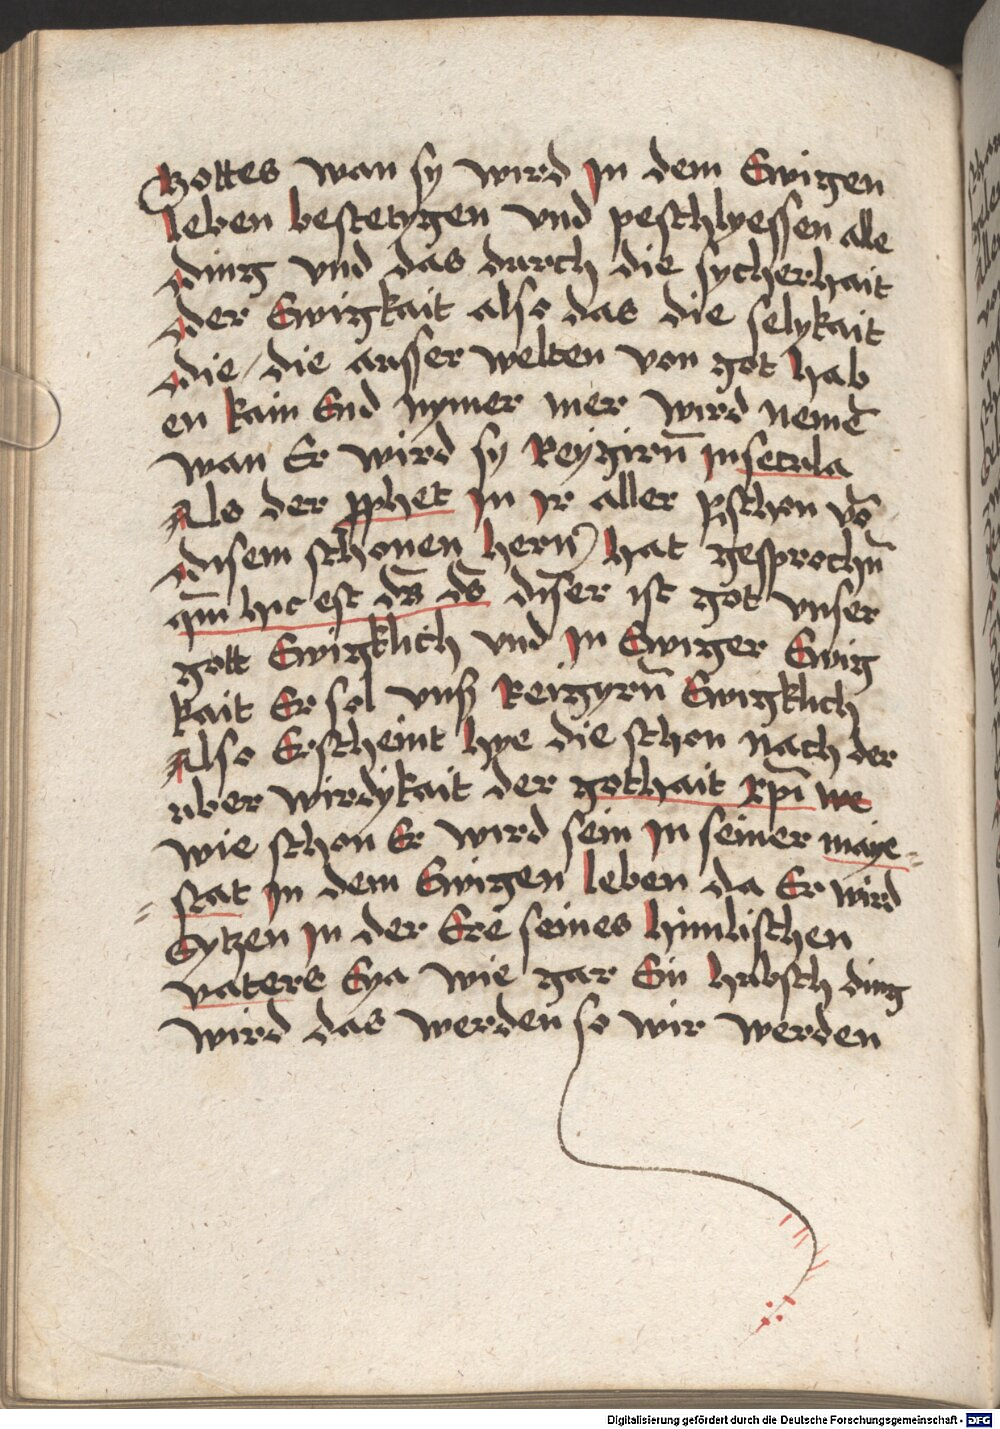 Gottes wan sy wird jn dem Ewigen
leben bestetygen vnd peschlyessen alle
ding vnd das durch die sycherhait
der Ewigkait also das die selykait
die / die ausser welten von got hab
en kain End nymer mer wird nemē
wan Er wird sy Reygirn̄ jn secula
Als der pphet jn jr aller pschon vō
disem schonen hern) hat gesprochn̄
qm̄ hic est ds̄ ds̄ diser ist got vnser
gott Ewigklich vnd jn Ewiger Ewig
kait Er sol vnß Reigyrn̄ Ewigklich
Also Erscheint hye die schon nach der
uber wirdykait der gothait xp̄i we
wie schon Er wird sein jn seiner maye=
=stat jn dem Ewigen leben da Er wird
Sytzen jn der Ere seines himlischen
vaters Eya wie gar Ein hubsch ding
wird das werden so wir werden
Digitalisierung gefördert durch die Deutsche Forschungsgemeinschaft - DFG